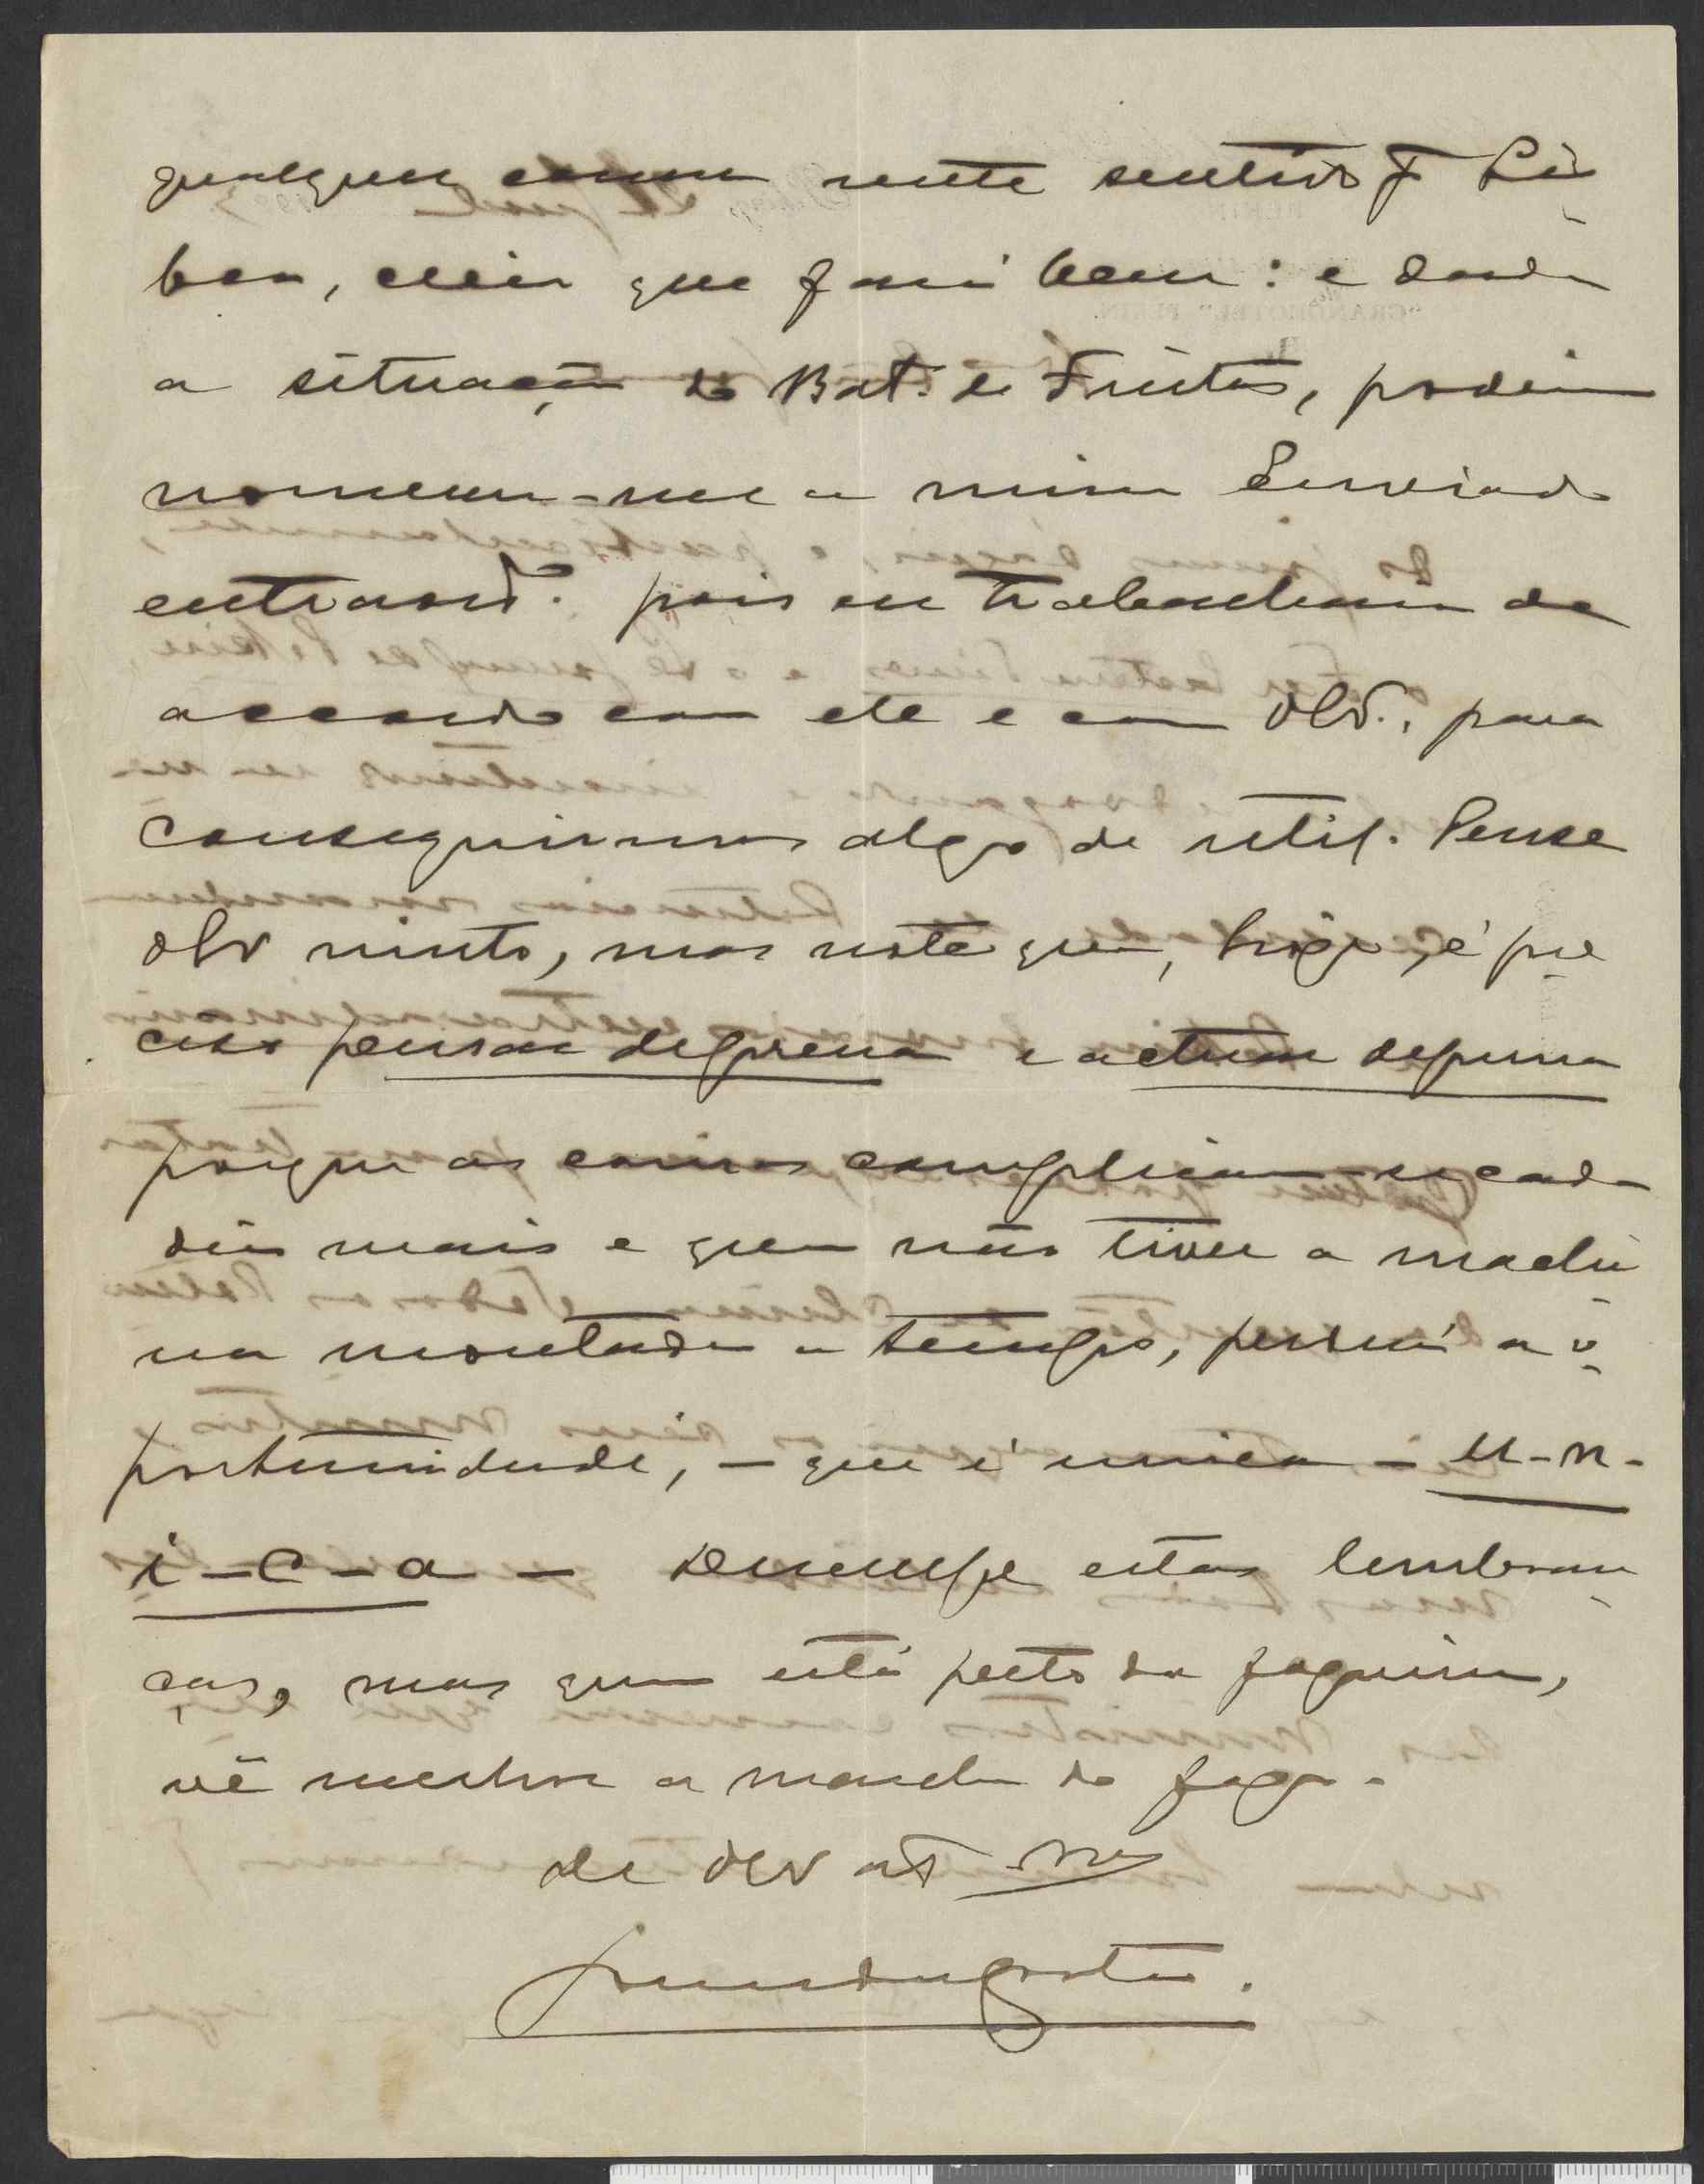 qualquer cousa neste sentido p.ª Lis
boa, creia que fará bem: e dada
a situação do Bat. de Freitas, podem
nomear-me a mim Enviado
extraord. pois eu trabalharia de
accordo com ele e com VEx., para
conseguirmos algo de util. Pense
VEx nisto, mas note que, hoje, é pre
ciso pensar depressa e actuar depressa
porque as coisas complicam-se cada
dia mais e quem não tiver a machi
na montada a tempo, perderá a o
portunidade, — que é unica — U-n-
i-c-a — Desculpe estas lembran
ças, mas quem está perto da fogueira,
vê melhor a marcha do fogo.
de VEx att